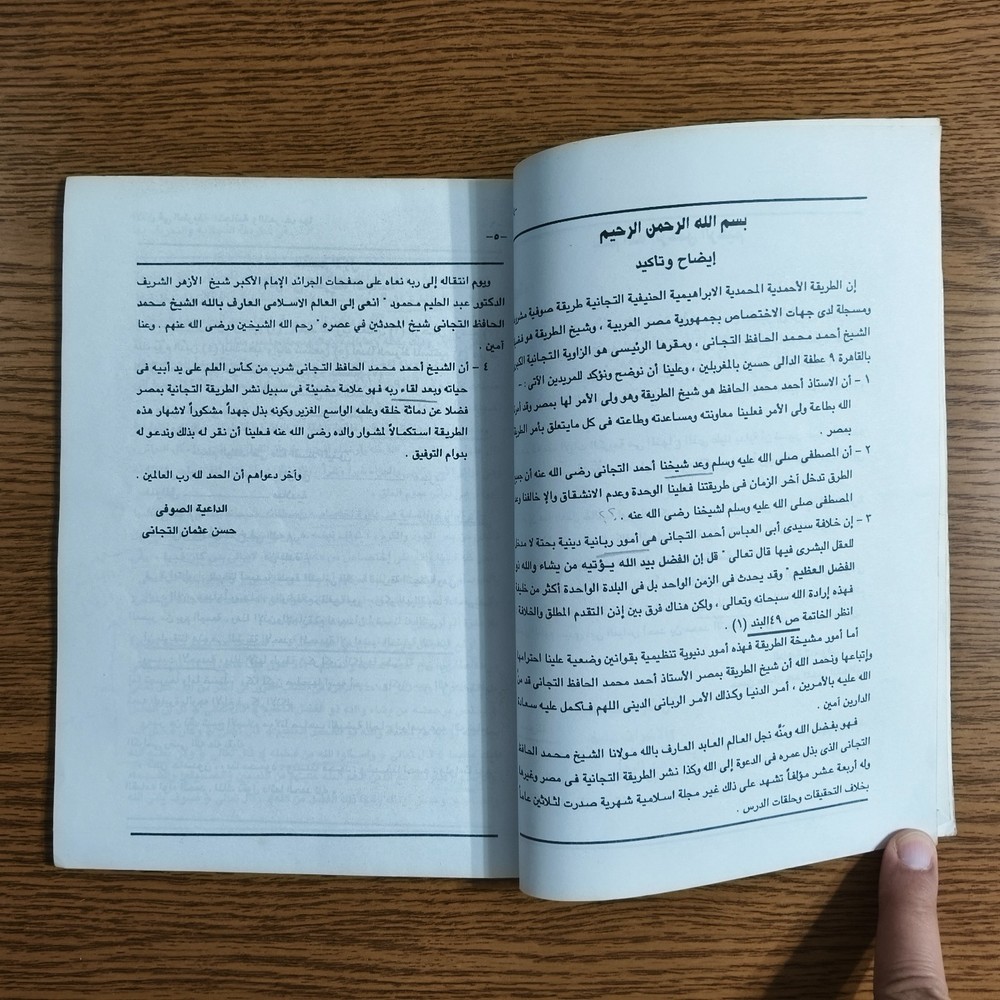 بسم الله الرحمن الرحيم
إيضاح وتاكيد
إن الطريقة الأحمدية المحمدية الابراهيمية الحنيفية التجانية طريقة صوفية
ومسجلة لدى جهات الاختصاص بجمهورية مصر العربية ، وشيخ الطريقة هو
الشيخ أحمد محمد الحافظ التجانى ، ومقرها الرئيسى هو الزاوية التجانية
بالقاهرة ٩ عطفة الدالى حسين بالمغربلين ، وعلينا أن نوضح ونؤكد للمريدين الآتى : -
١ - أن الاستاذ أحمد محمد الحافظ هو شيخ الطريقة وهو ولى الأمر لها بمصر وقد
الله بطاعة ولى الأمر فعلينا معاونته ومساعدته وطاعته فى كل مايتعلق بأمر
بمصر .
٢ - أن المصطفى صلى الله عليه وسلم وعد شيخنا أحمد التجانى رضى الله عنه أن
الطرق تدخل آخر الزمان فى طريقتنا فعلينا الوحدة وعدم الانشقاق وإلا خالفنا
المصطفى صلى الله عليه وسلم لشيخنا رضى الله عنه . ؟؟
٣ - إن خلافة سيدى أبى العباس أحمد التجانى هى أمور ربانية دينية بحتة لا
للعقل البشرى فيها قال تعالى " قل إن الفضل بيد الله يـؤتيه من يشاء والله
الفضل العظيم " وقد يحدث فى الزمن الواحد بل فى البلدة الواحدة أكثر من
فهذه إرادة الله سبحانه وتعالى ، ولكن هناك فرق بين إذن التقدم المطلق والخلافة
انظر الخاتمة ص ٤٩البند (١) .
أما أمور مشيخة الطريقة فهذه أمور دنيوية تنظيمية بقوانين وضعية علينا
وإتباعها ونحمد الله أن شيخ الطريقة بمصر الأستاذ أحمد محمد الحافظ التجانى قد
الله عليه بالأمرين ، أمر الدنيا وكذلك الأمر الربانى الدينى اللهم فـاكمل عليه
الدارين آمين .
فـهو بفضل الله ومَنَّه نجل العالم العابد العارف بالله مـولانا الشـيخ مـحـمد
التجانى الذى بذل عمره فى الدعوة إلى الله وكذا نشر الطريقة التجانية فى مصر
وله أربعة عشر مؤلفاً تشهد على ذلك غير مجلة اسلامية شهرية صدرت لثلاثين
بخلاف التحقيقات وحلقات الدرس .
–٥–
ويوم انتقاله إلى ربه نعاه على صفحات الجرائد الإمام الأكبر شيخ الأزهر الشريف
الدكتور عبد الحليم محمود " انعى إلى العالم الاسلامى العارف بالله الشيخ محمد
الحافظ التجانى شيخ المحدثين فى عصره " رحم الله الشيخين ورضى الله عنهم . وعنا
آمين .
٤ - أن الشيخ أحمد محمد الحافظ التجانى شرب من كـأس العلم على يد أبيه فى
حياته وبعد لقاء ربه فهو علامة مضيئة فى سبيل نشر الطريقة التجانية بمصر
فضلا عن دماثة خلقه وعلمه الواسع الغزير وكونه بذل جهداً مشكوراً لاشهار هذه
الطريقة استكمـالاً لمشوار والده رضى الله عنه فـعلينا أن نقر له بذلك وندعو له
بدوام التوفيق .
وآخر دعواهم أن الحمد لله رب العالمين .
الداعية الصوفى
حسن عثمان التجانى